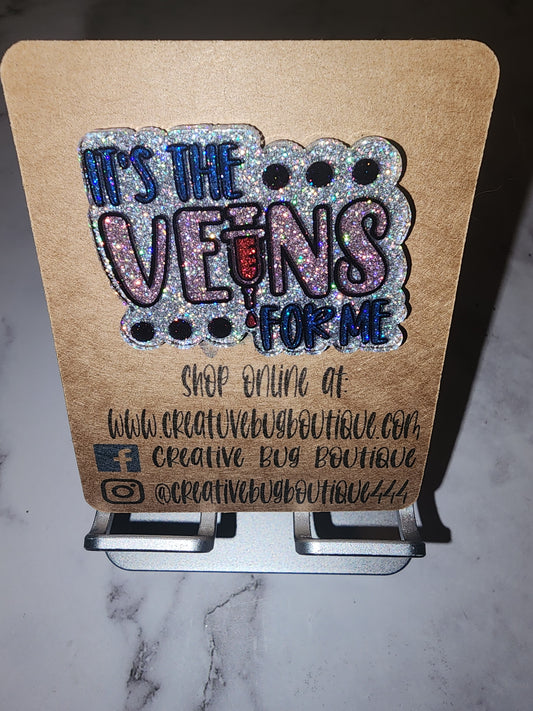 IT'S THE ...
VEINS
... FOR ME
Shop online at:
www.creatuvebugboutique.com
Creative Bug Boutique
@creativebugboutique444